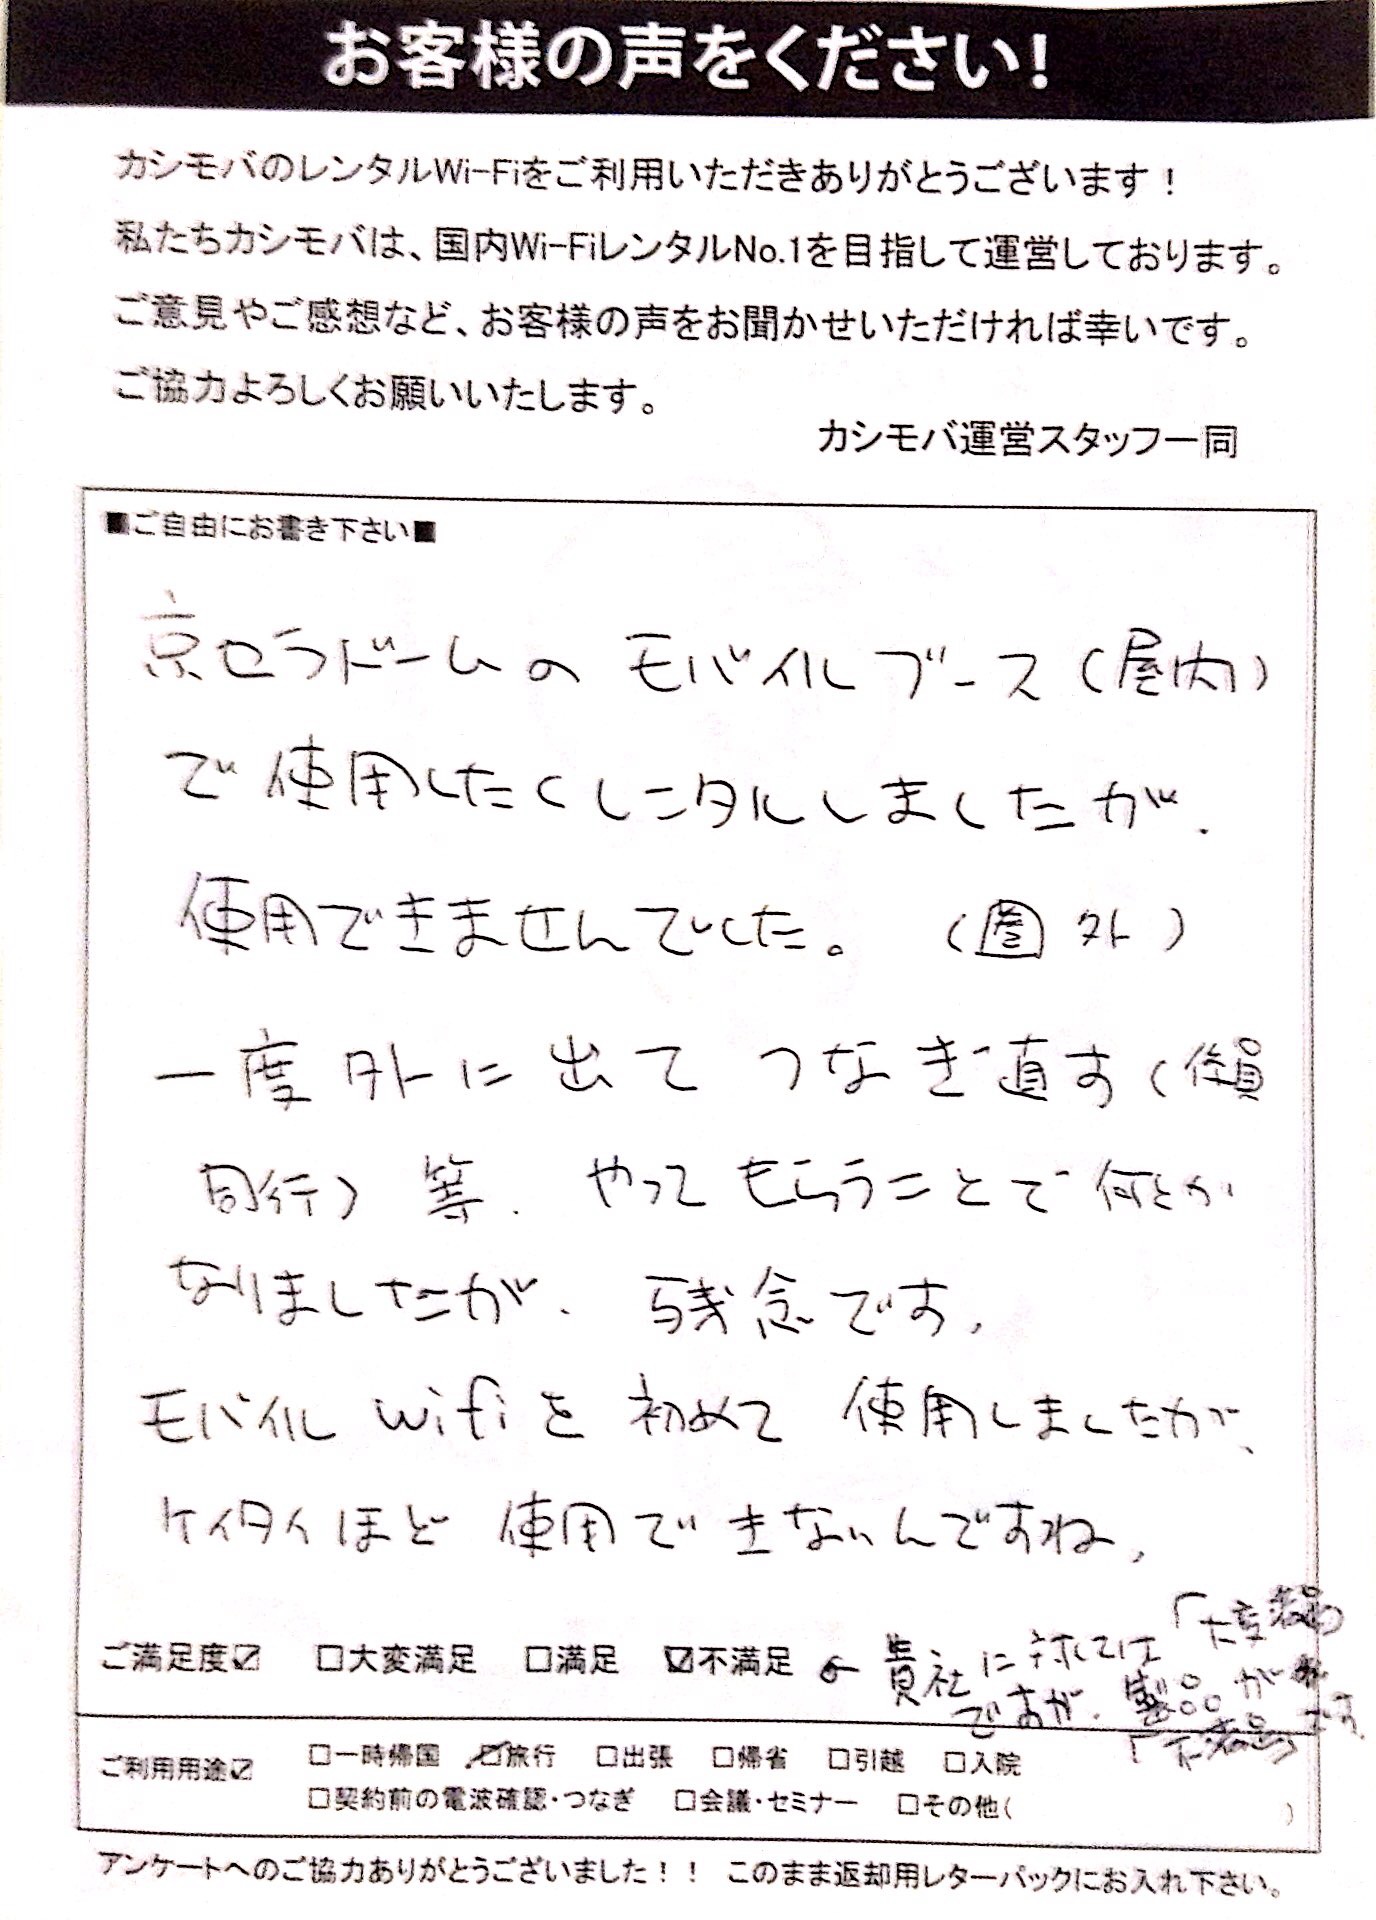 お客様の声をください!
カシモバのレンタルWi-Fiをご利用いただきありがとうございます!
私たちカシモバは、国内Wi-FiレンタルNo.1を目指して運営しております。
ご意見やご感想など、お客様の声をお聞かせいただければ幸いです。
ご協力よろしくお願いいたします。
カシモバ運営スタッフ一同
■ご自由にお書き下さい■
京セラドームの モバイルブース(屋内)
で使用したくレンタルしましたが、
使用できませんでした。 (圏外)
一度外に出て つなぎ直す(係員
同行)等、やってもらうことで何とか
なりましたが、残念です。
モバイルwifiを初めて使用しましたが、
ケイタイほど使用できないんですね。
ご満足度☑ □大変満足 □満足 ☑不満足 ← 貴社に対しては「大変満足」
ですが、製品が
「不満足」です。
ご利用用途☑ □一時帰国 ☑旅行 □出張 □帰省 □引越 □入院
□契約前の電波確認・つなぎ □会議・セミナー □その他( )
アンケートへのご協力ありがとうございました!! このまま返却用レターパックにお入れ下さい。